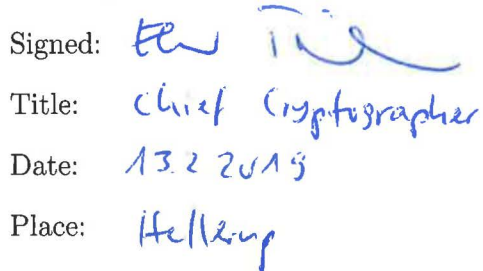 Signed:
Title: Chief Cryptographer
Date: 13.2 2019
Place: Hellerup